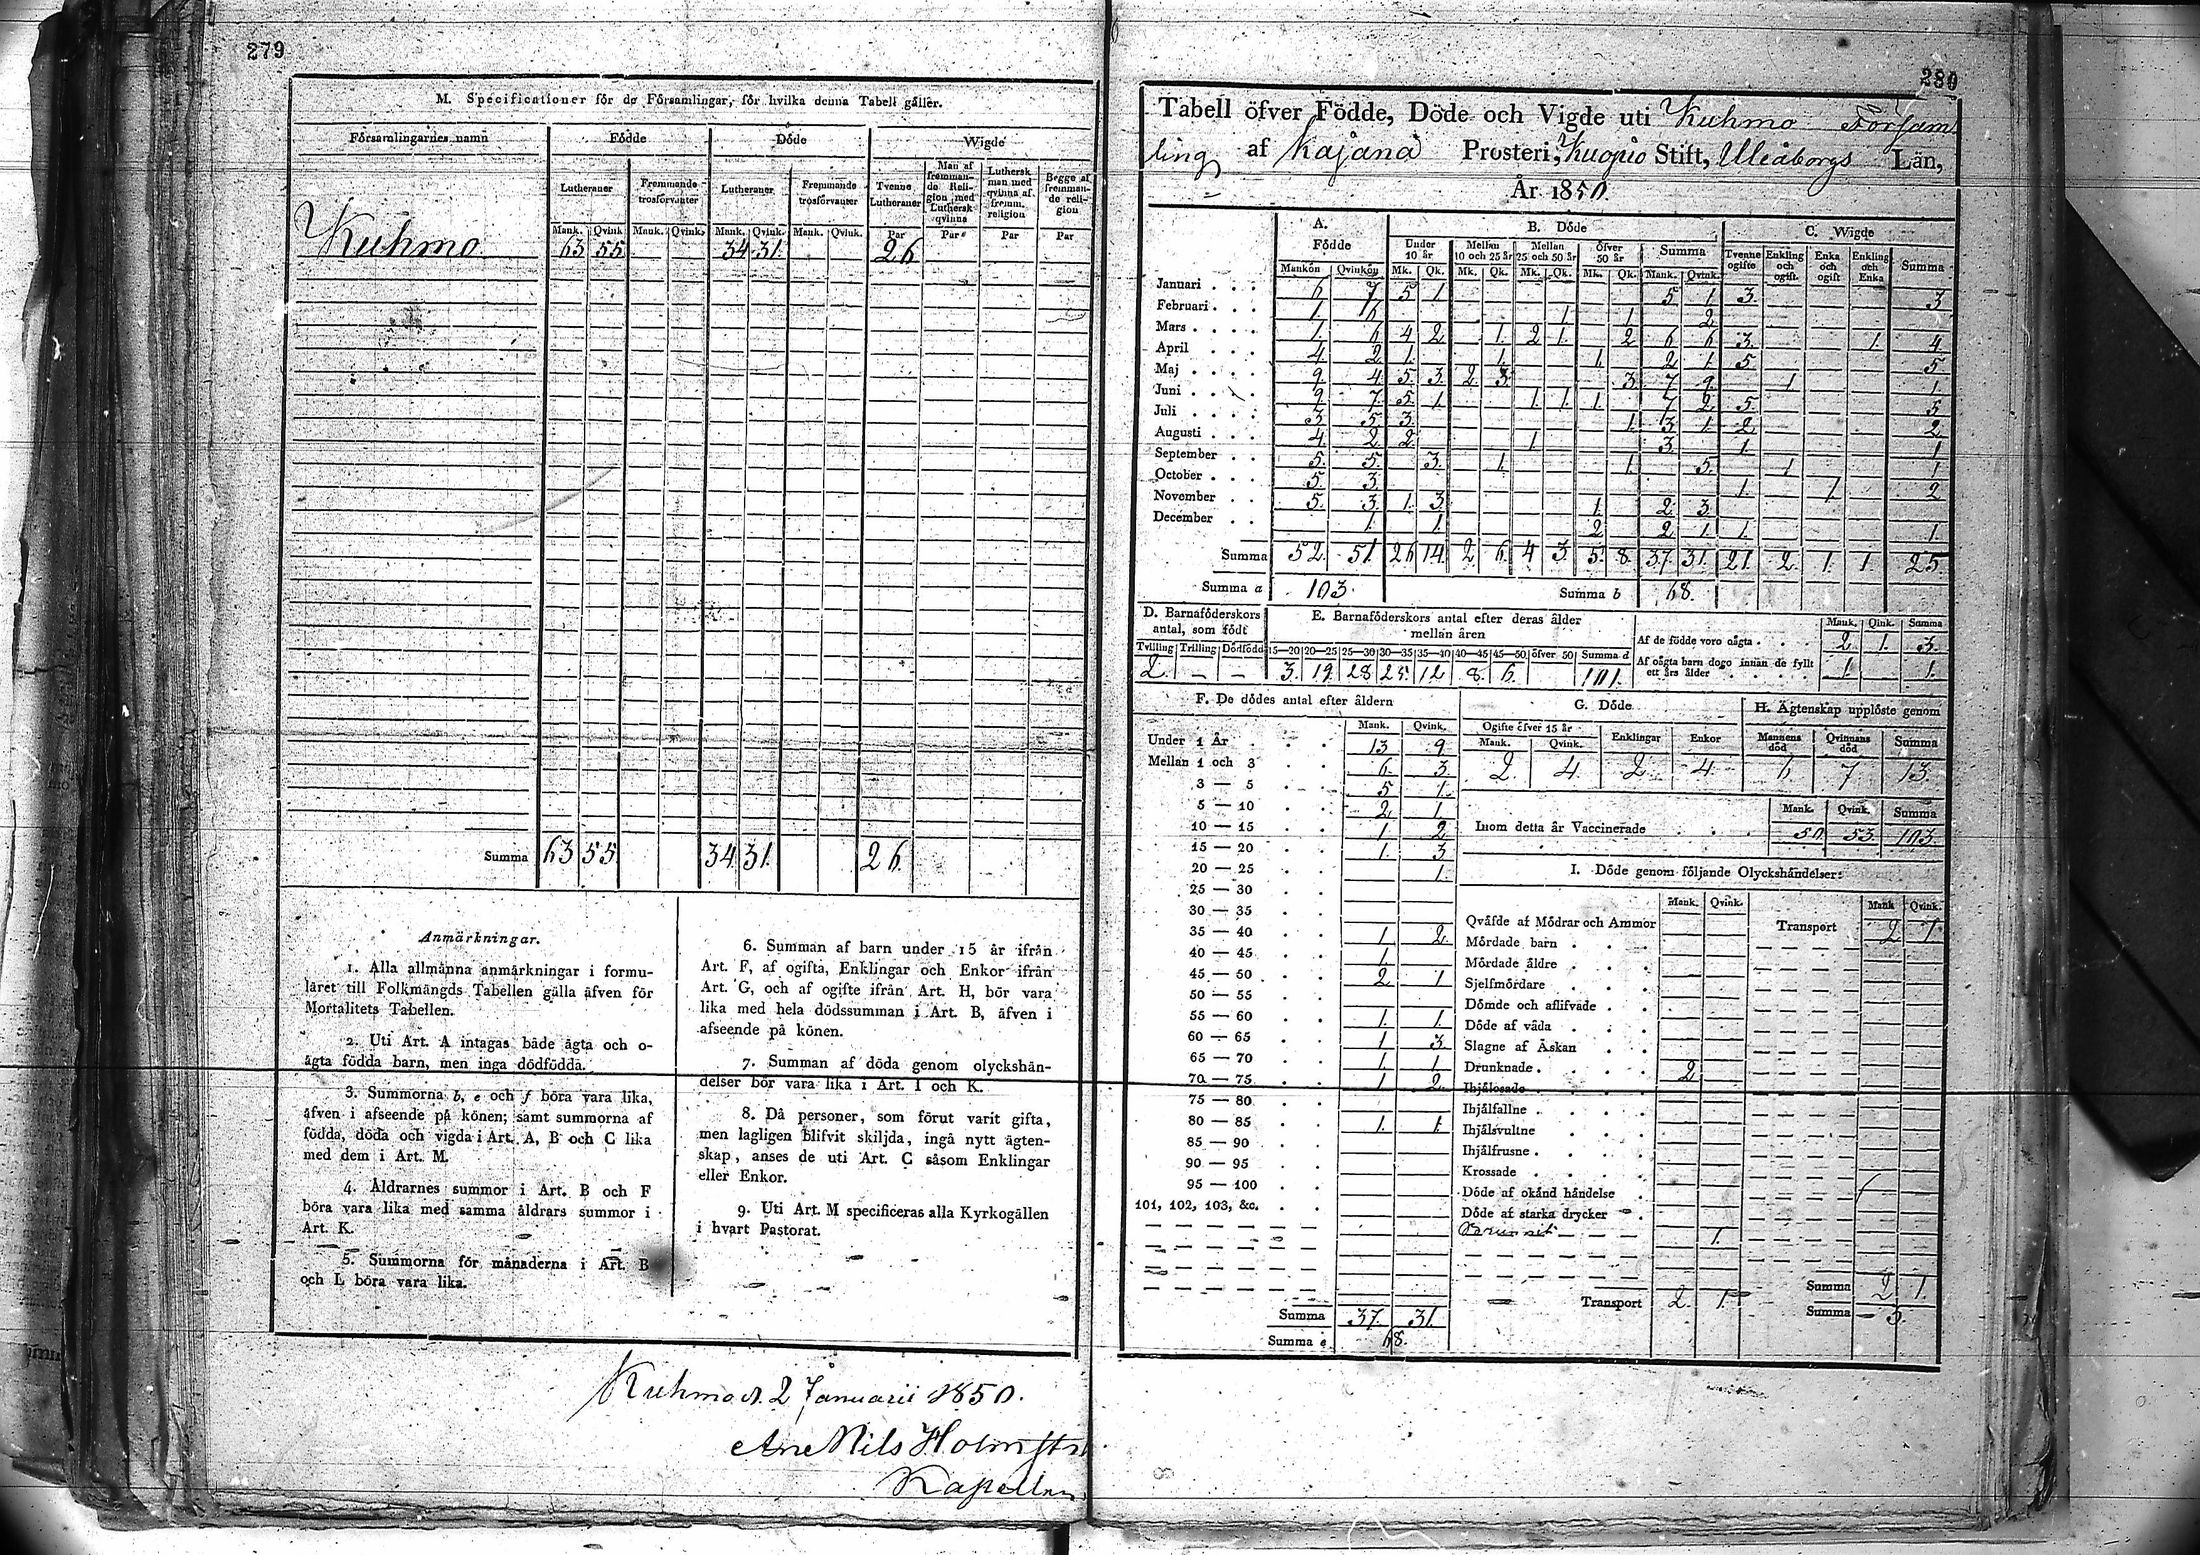 279
M. Specificationer för de Församlingar, för hvilka denna Tabell gäller.
Församlingarnes namn | Födde | Döde | Wigde
Lutheraner | Fremmande trosförvanter | Lutheraner | Fremmande trosförvanter | Tvenne Lutheraner | Man af fremmande Religion med Luthersk qvinna | Luthersk man med qvinna af fremm. religion | Begge af fremmande religion
Mank. | Qvink. | Mank. | Qvink. | Mank. | Qvink. | Mank. | Qvink. | Par | Par | Par | Par
Kuhmo | 63 | 55 | 34 | 31. | 26
Summa | 63 | 55. | 34. | 31. | 26.
Anmärkningar.
1. Alla allmänna anmärkningar i formu-
läret till Folkmängds Tabellen gälla äfven för
Mortalitets Tabellen.
2. Uti Art. A intagas både ägta och o-
ägta födda barn, men inga dödfödda.
3. Summorna b, e och f böra vara lika,
äfven i afseende på könen; samt summorna af
födda, döda och vigda i Art. A, B och C lika
med dem i Art. M.
4. Åldrarnes summor i Art. B och F
böra vara lika med samma åldrars summor i
Art. K.
5. Summorna för månaderna i Art. B
och L böra vara lika.
6. Summan af barn under 15 år ifrån
Art. F, af ogifta, Enklingar och Enkor ifrån
Art. G, och af ogifte ifrån Art. H, bör vara
lika med hela dödssumman i Art. B, äfven i
afseende på könen.
7. Summan af döda genom olyckshän-
delser bör vara lika i Art. I och K.
8. Då personer, som förut varit gifta,
men lagligen blifvit skiljda, ingå nytt ägten-
skap, anses de uti Art. C såsom Enklingar
eller Enkor.
9. Uti Art. M specificeras alla Kyrkogällen
i hvart Pastorat.
Kuhmo d. 2 Januarii 1850.
Nils
Kapellan
280
Tabell öfver Födde, Döde och Vigde uti Kuhmo Församl
ling af Kajana Prosteri, Kuopio Stift, Uleåborgs Län,
År 1850.
A. Födde | B. Döde | C. Wigde
Under 10 år | Mellan 10 och 25 år | Mellan 25 och 50 år | Öfver 50 år | Summa | Tvenne ogifte | Enkling och ogift. | Enka och ogift | Enkling och Enka | Summa
Mankön | Qvinkön | Mk. | Qk. | Mk. | Qk. | Mk. | Qk. | Mk. | Qk. | Mank. | Qvink.
Januari | 6 | 7 | 5 | 1 | 5 | 1 | 3. | 3
Februari | 1. | 6 | 1 | 1 | 2
Mars | 1. | 6 | 4 | 2 | 1. | 2 | 1. | 2 | 6 | 6 | 3. | 1. | 4
April | 4 | 2 | 1. | 1. | 1. | 2 | 1. | 5 | 5
Maj | 9. | 4 | 5. | 3. | 2. | 3. | 3. | 7 | 9. | 1 | 1.
Juni | 9 | 7. | 5. | 1 | 1. | 1. | 1. | 7 | 2. | 5. | 5
Juli | 3 | 5 | 3. | 1. | 3 | 1. | 2. | 2
Augusti | 4 | 2 | 2. | 1 | 3. | 1. | 1
September | 5. | 5. | 3. | 1. | 1. | 5. | 1 | 1
October | 5 | 3. | 1. | 1. | 2
November | 5. | 3. | 1. | 3. | 1. | 2. | 3.
December | 1. | 1. | 2 | 2. | 1. | 1. | 1.
Summa | 52. | 51. | 26 | 14. | 2 | 6. | 4 | 3 | 5. | 8. | 37. | 31. | 21. | 2. | 1. | 1 | 25.
Summa a | 103. | Summa b | 68.
D. Barnaföderskors antal, som födt
Tvilling | Trilling | Dödfödd
2. | — | —
E. Barnaföderskors antal efter deras ålder mellan åren
15—20 | 20—25 | 25—30 | 30—35 | 35—40 | 40—45 | 45—50 | öfver 50 | Summa d
3. | 19. | 28 | 25. | 12 | 8. | 6. | 101.
Mank. | Qink. | Summa
Af de födde voro oägta | 2. | 1. | 3.
Af oägta barn dogo innan de fyllt ett års ålder | 1. | 1.
F. De dödes antal efter åldern
Mank. | Qvink.
Under 1 År | 13 | 9
Mellan 1 och 3 | 6. | 3.
3 — 5 | 5 | 1.
5 — 10 | 2. | 1
10 — 15 | 1 | 2
15 — 20 | 1. | 3
20 — 25 | 1.
25 — 30
30 — 35
35 — 40 | 1. | 2.
40 — 45 | 1.
45 — 50 | 2 | 1
50 — 55
55 — 60 | 1. | 1.
60 — 65 | 1 | 3
65 — 70 | 1. | 1
70 — 75 | 1 | 2.
75 — 80
80 — 85 | 1. | 1.
85 — 90
90 — 95
95 — 100
101, 102, 103, &c.
Summa | 37. | 31.
Summa e | 68.
G. Döde
Ogifte öfver 15 år | Enklingar | Enkor
Mank. | Qvink.
2. | 4. | 2. | 4
H. Ägtenskap upplöste genom
Mannens död | Qvinnans död | Summa
6 | 7 | 13.
Mank. | Qvink. | Summa
Inom detta år Vaccinerade | 50. | 53. | 103.
I. Döde genom följande Olyckshändelser:
Mank. | Qvink. | Mank | Qvink.
Qväfde af Mödrar och Ammor | Transport | 2 | 1
Mördade barn
Mördade äldre
Sjelfmördare
Dömde och aflifvade
Döde af våda
Slagne af Åskan
Drunknade | 2
Ihjälosade
Ihjälfallne
Ihjälsvultne
Ihjälfrusne
Krossade
Döde af okänd händelse
Döde af starka drycker
1.
Transport | 2. | 1.
Summa | 2 | 1.
Summa | 3.